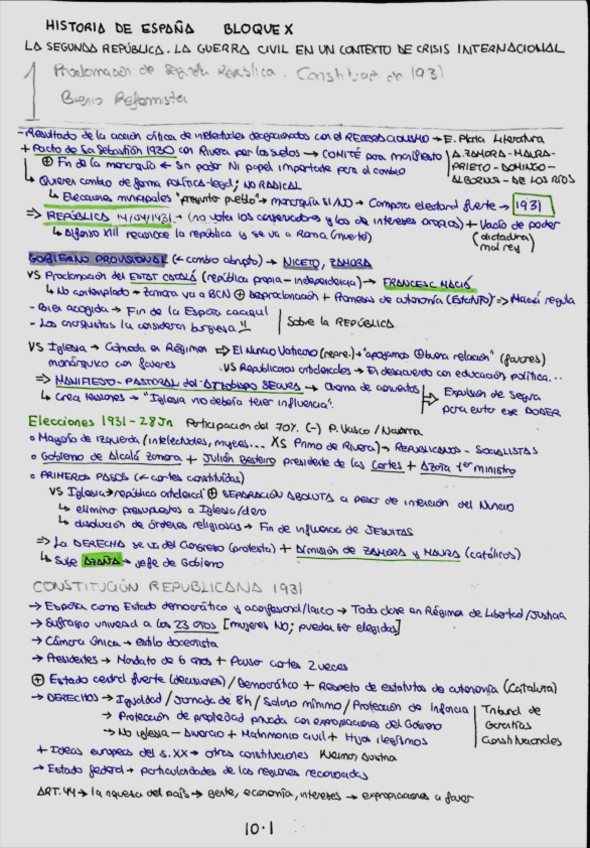 HISTORIA DE ESPAÑA BLOQUE X
LA SEGUNDA REPÚBLICA. LA GUERRA CIVIL EN UN CONTEXTO DE CRISIS INTERNACIONAL
1 Proclamación de Segunda República. Constitución 1931
Bienio Reformista
-Resultado de la acción crítica de intelectuales decepcionados con el REGENERACIONISMO → E. Plata Literatura
+ Pacto de San Sebastián 1930 con Rivera por los suelos → COMITÉ para manifiesto
A. ZAMORA - MAURA -
PRIETO - DOMINGO -
ALBORNOZ - DE LOS RÍOS
⊕ Fin de la monarquía ← Sin poder Ni papel importante para el cambio
↳ Quieren cambio de forma política-legal; NO RADICAL
↳ Elecciones municipales "pregunta pueblo" → monarquía SI/NO → Campaña electoral fuerte → 1931
⇒ REPÚBLICA 14/04/1931 → (no vota los conservadores y los de intereses propios) + Vacío de poder
(dictadura)
mal rey
↳ Alfonso XIII reconoce la república y se va a Roma (muerto)
GOBIERNO PROVISIONAL (← cambio abrupto) → NICETO, ZAMORA
VS Proclamación del ESTAT CATALÁ (república propia - independencia) → FRANCESC MACIÁ
↳ No contemplado → Zamora va a BCN ⊕ Desproclamación + Promesas de autonomía (Estatuto) ⇒ Maciá regula
- Bien acogida → Fin de la España caciquil
- Los anarquistas la consideran burguesa!!
Sobre la REPÚBLICA
VS Iglesia → Cómoda en Régimen ⇒ El Nuncio Vaticano (repre.) → "apoyamos ⊕ buena relación" (favores)
monárquico con favores
VS Republicanos anticlericales → En desacuerdo con educación política...
⇒ MANIFIESTO-PASTORAL del Arzobispo SEGURA → Quema de conventos
↳ Crea tensiones → "Iglesia no debería tener influencia".
Expulsión de Segura
para evitar ese PODER
Elecciones 1931 - 28 Jn Participación del 70% (-) P. Vasco / Navarra
• Mayoría de izquierda (intelectuales, mujeres... XS Primo de Rivera) → REPUBLICANOS - SOCIALISTAS
• Gobierno de Alcalá Zamora + Julián Besteiro presidente de las Cortes + Azaña 1er ministro
• PRIMEROS PASOS (← cortes constituidas)
VS Iglesia → república anticlerical ⊕ SEPARACIÓN ABSOLUTA a pesar de intención del Nuncio
↳ elimina presupuestos a Iglesia/clero
↳ disolución de órdenes religiosas → Fin de influencia de JESUITAS
⇒ La DERECHA se va del Congreso (protesta) + dimisión de ZAMORA y MAURA (católicos)
↳ Sube AZAÑA → jefe de Gobierno
CONSTITUCIÓN REPUBLICANA 1931
→ España como Estado democrático y aconfesional/laico → Toda clase en Régimen de Libertad/Justicia
→ Sufragio universal a los 23 años [mujeres NO; puedan ser elegidas]
→ Cámara única → estilo doceanista
→ Presidentes → Mandato de 6 años + Pausar cortes 2 veces
⊕ Estado central fuerte (decisiones) / Democrático + Respeto de estatutos de autonomía (Cataluña)
→ DERECHOS → Igualdad / Jornada de 8h / Salario mínimo / Protección de Infancia
→ Protección de propiedad privada con expropiaciones del Gobierno
→ No iglesia - Divorcio + Matrimonio civil + Hijos ilegítimos
Tribunal de
Garantías
Constitucionales
+ Ideas europeas del s. XX → otras constituciones Weimar Austria
→ Estado federal → particularidades de las regiones reconocidas
ART. 44 → la riqueza del país → gente, economía, intereses → expropiaciones a favor
10.1